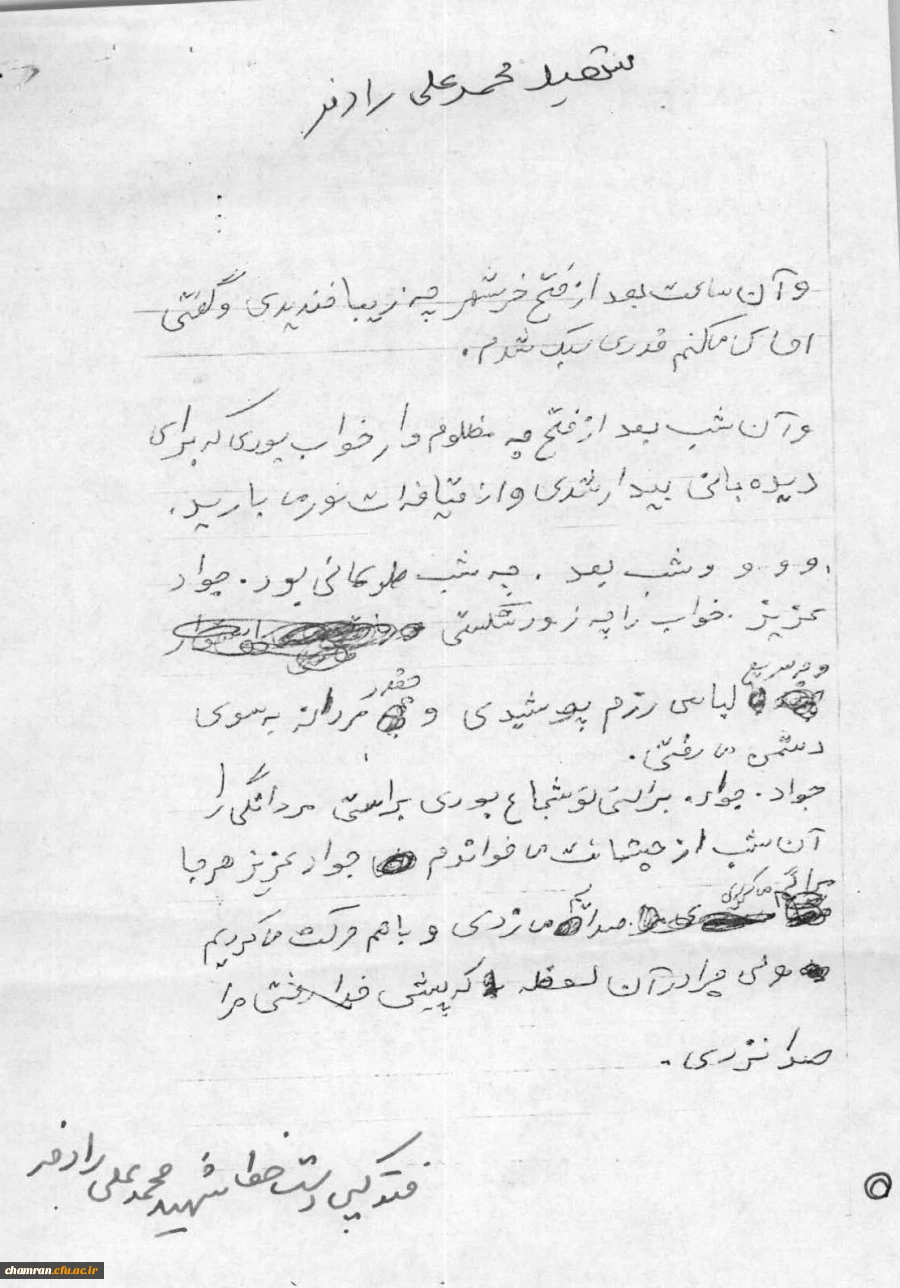 شهید محمد علی رادفر
و آن ساعت بعد از فتح خرمشهر چه زیبا خندیدی و گفتی
احساس میکنم قدری سبک شدم.
و آن شب بعد از فتح چه مظلوم وار خواب بودی که برای
دیده بانی بیدار شدی و از قیافه ات نور می بارید.
و و و و شب بعد. چه شب طوفانی بود. جواد
عزیز. خواب را چه زود شکستی
و چه سریع
لباس رزم پوشیدی و چقدر مردانه به سوی
دشمن می رفتی.
جواد. جواد. براستی تو شجاع بودی براستی مردانگی را
آن شب از چشمانت می خواندم جواد عزیز هرجا
می کردی
صدایم می زدی و باهم حرکت می کردیم
ولی چرا در آن لحظه که پیش خدا رفتی مرا
صدا نزدی.
فتوکپی دست خط شهید محمد علی رادفر
chamran.cfu.ac.ir